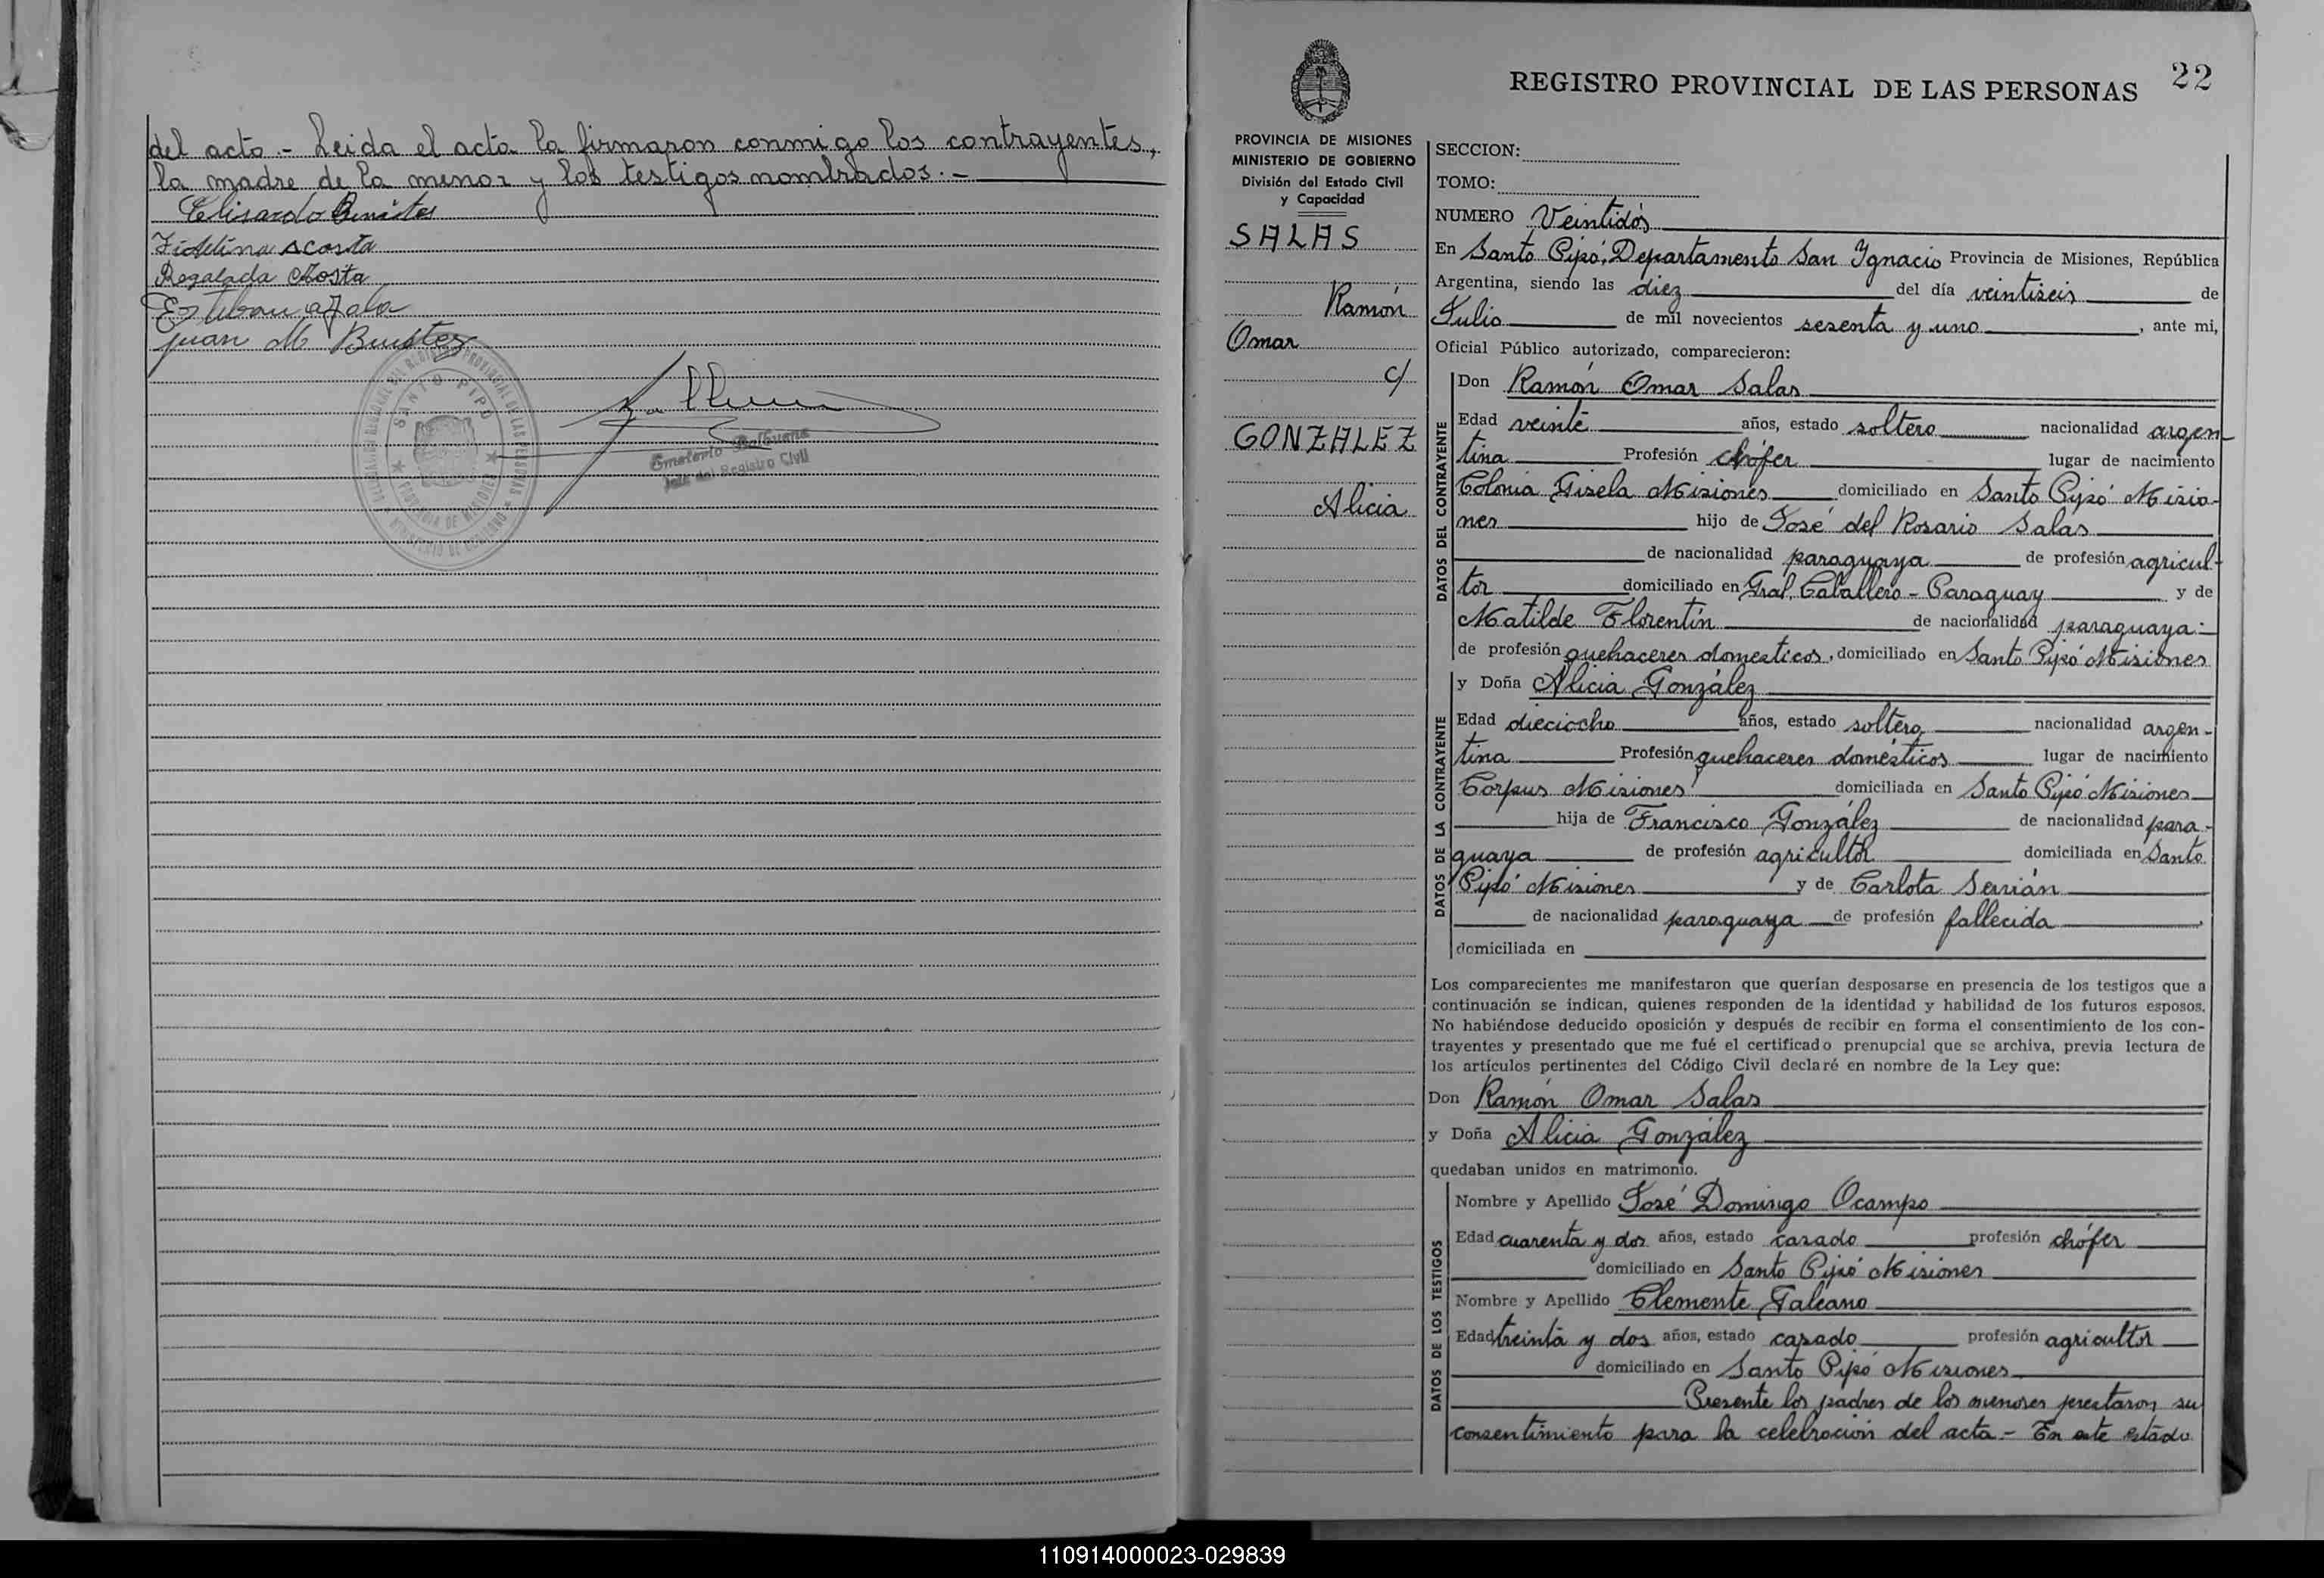 del acto.- Leida el acta la firmaron conmigo los contrayentes,
la madre de la menor y los testigos nombrados.-
Elisardo Benites
Fidelina Acosta
Regalada Acosta
Esteban ayala
Juan M Benitez
SANTO PIPO
PROVINCIA DE MISIONES
MINISTERIO DE GOBIERNO
Emeterio Balbuena
Jefe del Registro Civil
22
REGISTRO PROVINCIAL DE LAS PERSONAS
PROVINCIA DE MISIONES
MINISTERIO DE GOBIERNO
División del Estado Civil
y Capacidad
SALAS
Ramón
Omar
c/
GONZALEZ
Alicia
SECCION:
TOMO:
NUMERO Veintidós
En Santo Pipó, Departamento San Ygnacio Provincia de Misiones, República
Argentina, siendo las diez del día veintiseis de
Julio de mil novecientos sesenta y uno, ante mi,
Oficial Público autorizado, comparecieron:
DATOS DEL CONTRAYENTE
Don Ramón Omar Salas
Edad veinte años, estado soltero nacionalidad argen-
tina Profesión chófer lugar de nacimiento
Colonia Gisela Misiones domiciliado en Santo Pipó Misio-
nes hijo de José del Rosario Salas
de nacionalidad paraguaya de profesión agricul-
tor domiciliado en Gral. Caballero - Paraguay y de
Matilde Florentín de nacionalidad paraguaya.-
de profesión quehaceres domesticos, domiciliado en Santo Pipó Misiones
DATOS DE LA CONTRAYENTE
y Doña Alicia González
Edad dieciocho años, estado soltera nacionalidad argen-
tina Profesión quehaceres domésticos lugar de nacimiento
Corpus Misiones domiciliada en Santo Pipó Misiones
hija de Francisco González de nacionalidad para-
guaya de profesión agricultor domiciliada en Santo
Pipó Misiones y de Carlota Servián
de nacionalidad paraguaya de profesión fallecida
domiciliada en
Los comparecientes me manifestaron que querían desposarse en presencia de los testigos que a
continuación se indican, quienes responden de la identidad y habilidad de los futuros esposos.
No habiéndose deducido oposición y después de recibir en forma el consentimiento de los con-
trayentes y presentado que me fué el certificado prenupcial que se archiva, previa lectura de
los artículos pertinentes del Código Civil declaré en nombre de la Ley que:
Don Ramón Omar Salas
y Doña Alicia González
quedaban unidos en matrimonio.
DATOS DE LOS TESTIGOS
Nombre y Apellido José Domingo Ocampo
Edad cuarenta y dos años, estado casado profesión chófer
domiciliado en Santo Pipó Misiones
Nombre y Apellido Clemente Galeano
Edad treinta y dos años, estado casado profesión agricultor
domiciliado en Santo Pipó Misiones
Presente los padres de los menores prestaron su
consentimiento para la celebración del acta - En este estado
110914000023-029839